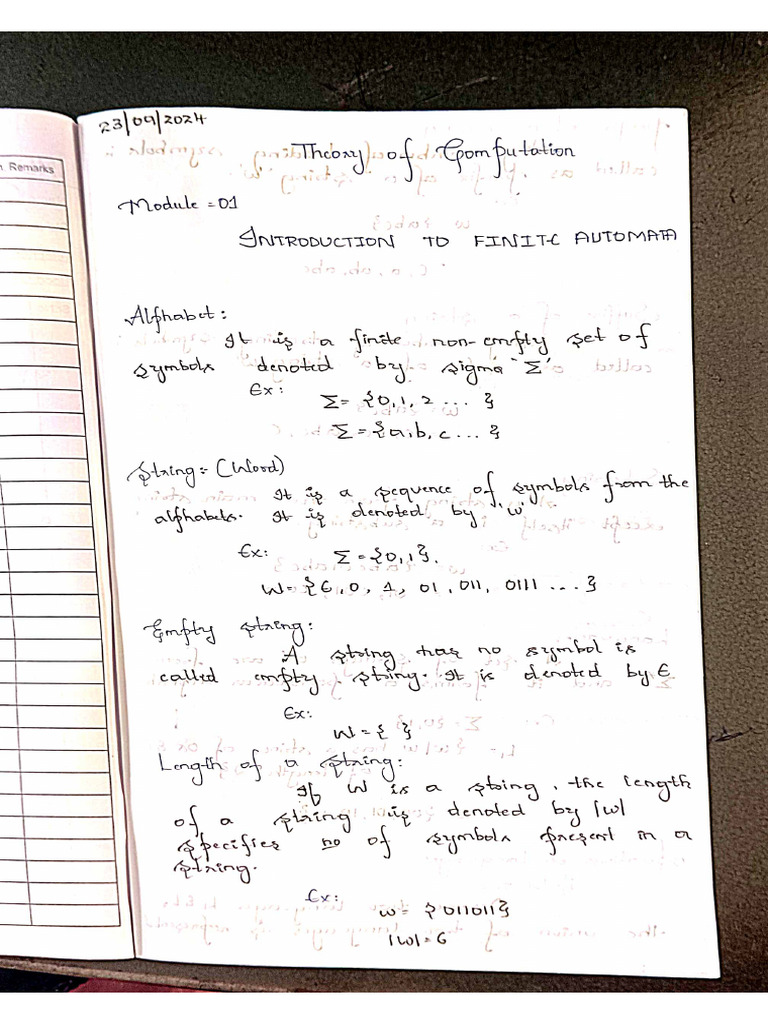 n. Remarks
23/09/2024
Theory of Computation
Module = 01
INTRODUCTION TO FINITE AUTOMATA
Alphabet:
It is a finite non-empty set of
symbols denoted by sigma `Σ´
Ex:
Σ = {0, 1, 2 ... }
Σ = {a, b, c ... }
String:- (Word)
It is a sequence of symbols from the
alphabets. It is denoted by 'w'
Ex: Σ = {0, 1}.
W = {ϵ, 0, 1, 01, 011, 0111 ... }
Empty string:
A string has no symbol is
called empty string. It is denoted by ϵ
Ex:
W = { }
Length of a string:
If W is a string, the length
of a string is denoted by |w|
specifies no of symbols present in a
string.
Ex:
w = {011011}
|w| = 6